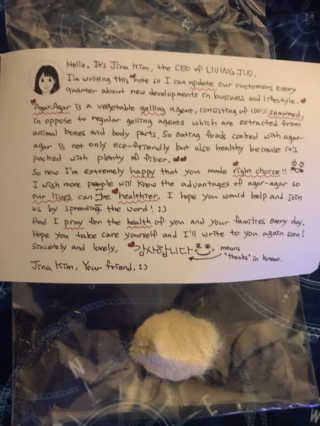 Hello, It's Jina Kim, the CEO of LIVING JIN.
I'm writing this note so I can update our customers every
quarter about new developments in business and lifestyle.
Agar-Agar is a vegetable gelling agent, consisting of 100% seaweed,
in oppose to regular gelling agents which are extracted from
animal bones and body parts. So eating foods cooked with agar-
agar is not only eco-friendly but also healthy because it's
packed with plenty of fiber.
So now I'm extremely happy that you made right choice!!
I wish more people will know the advantages of agar-agar so
our lives can be healthier. I hope you would help and join
us by spreading the word! :)
And I pray for the health of you and your families every day.
Hope you take care yourself and I'll write to you again soon!
Sincerely and lovely, 감사합니다 means
"thanks" in Korean.
Jina Kim, Your friend, :)